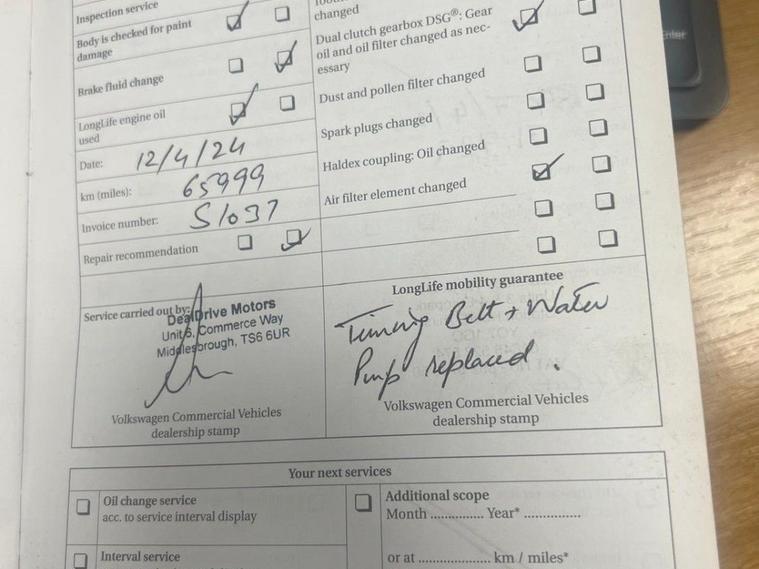 Inspection service
Body is checked for paint
damage
Brake fluid change
LongLife engine oil
used
Date: 12/4/24
km (miles): 65999
Invoice number: S1037
Repair recommendation
changed
Dual clutch gearbox DSG®: Gear
oil and oil filter changed as nec-
essary
Dust and pollen filter changed
Spark plugs changed
Haldex coupling: Oil changed
Air filter element changed
Service carried out by:
DealDrive Motors
Unit 6, Commerce Way
Middlesbrough, TS6 6UR
Volkswagen Commercial Vehicles
dealership stamp
LongLife mobility guarantee
Timing Belt + Water
Pump replaced.
Volkswagen Commercial Vehicles
dealership stamp
Your next services
Oil change service
acc. to service interval display
Interval service
Additional scope
Month .............. Year* ...............
or at ................... km / miles*
Enter